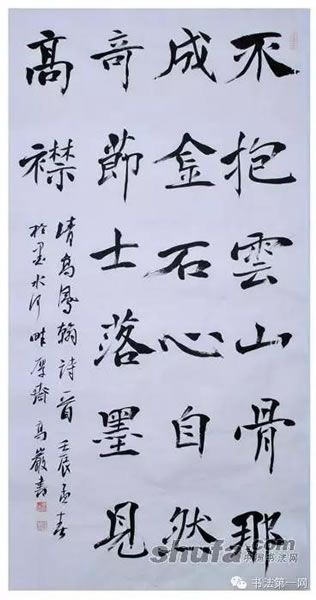 不抱雲山骨那
成金石心自然
竒節士落墨見
髙襟
清高鳳翰詩一首 壬辰孟春
於墨水河畔厚齋高嚴書
shufa.com
书法第一网